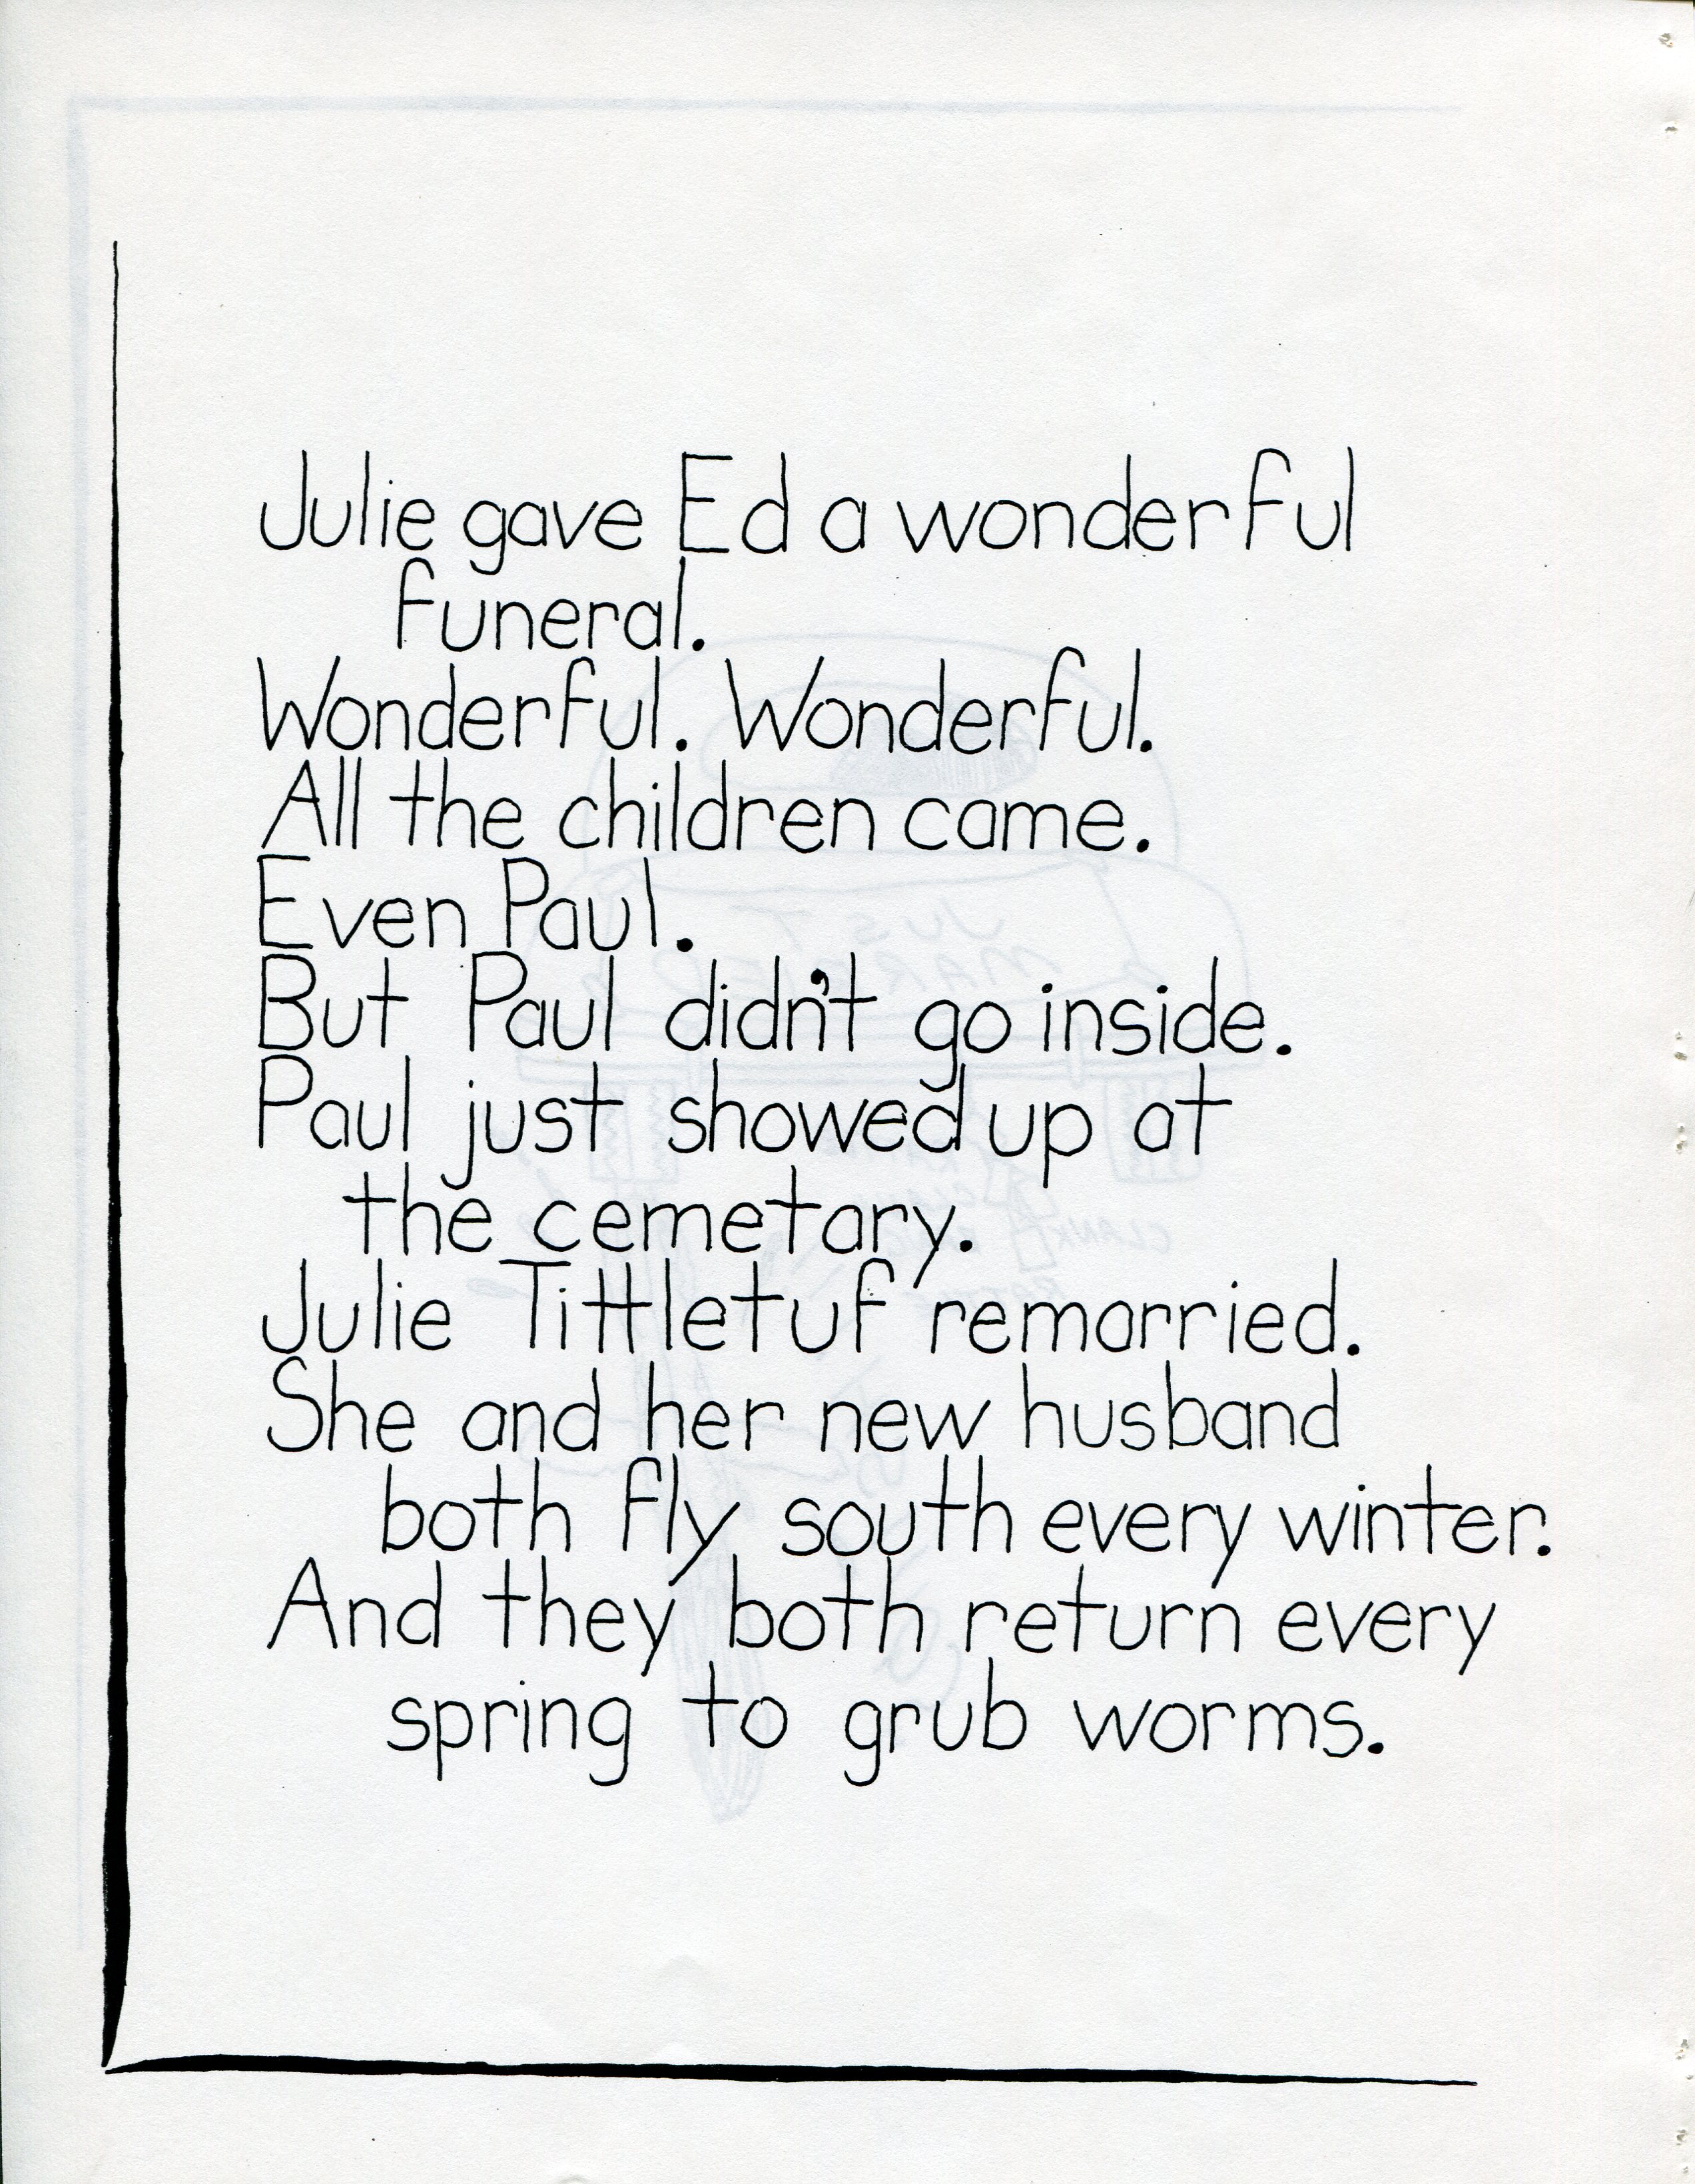 Julie gave Ed a wonderful
funeral.
Wonderful. Wonderful.
All the children came.
Even Paul.
But Paul didn't go inside.
Paul just showed up at
the cemetary.
Julie Tittletuf remarried.
She and her new husband
both fly south every winter.
And they both return every
spring to grub worms.
JUST
MARRIED
CLANK